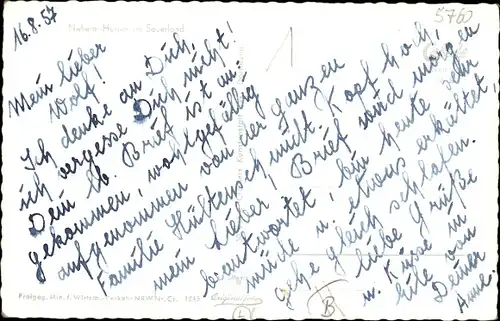 16.8.57
5760
Neheim-Hüsten im Sauerland
1
Mein lieber
Wolf!
Ich denke an Dich,
ich vergesse Dich nicht!
Dein lb. Brief ist an-
gekommen, wohlgefällig
aufgenommen von der ganzen
Familie Hüttenschmidt. Kopf hoch,
mein lieber Brief wird morgen
beantwortet, bin heute sehr
müde u. etwas erkältet,
gehe gleich schlafen.
liebe Grüße
u. Küsse in
Liebe von
Deiner
Anne.
L
B